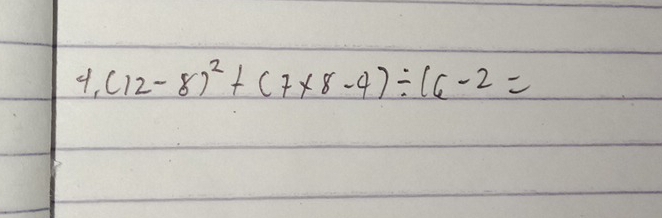 4. (12 - 8)² + (7 × 8 - 4) ÷ (6 - 2 =